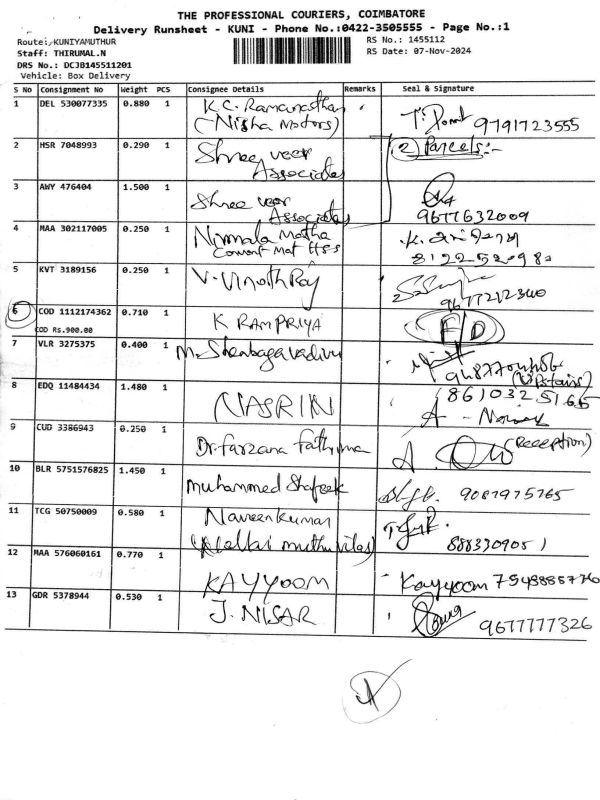 THE PROFESSIONAL COURIERS, COIMBATORE
Delivery Runsheet - KUNI - Phone No.:0422-3505555 - Page No.:1
Route: KUNIYAMUTHUR
RS No.: 1455112
Staff: THIRUMAL.N
RS Date: 07-Nov-2024
DRS No.: DCJB145511201
Vehicle: Box Delivery
S No Consignment No Weight PCS Consignee Details Remarks Seal & Signature
1 DEL 530077335 0.880 1 K.C. Ramanathan
(Nisha Motors) 9791723555
2 HSR 7048993 0.290 1 Shree veer (2) Parcels:-
Associates
3 AWY 476404 1.500 1 Shree veer
Associates 9677632009
4 MAA 302117005 0.250 1 Nirmala Matha
Convent Mat HSS
5 KVT 3189156 0.250 1 V. Vinoth Raj
9677212340
6 COD 1112174362 0.710 1 K RAMPRIYA F/D
COD Rs.900.00
7 VLR 3275375 0.400 1 M. Shenbagavadivu
(Upstairs)
8 EDQ 11484434 1.480 1 NASRIN 8610325165
9 CUD 3386943 0.250 1 Dr. Farzana Fathima (Reception)
10 BLR 5751576825 1.450 1 Muhammed Shafeek 9087975765
11 TCG 50750009 0.580 1 Naveenkumar
(Nellai muthuvilas) 8883309051
12 MAA 576060161 0.770 1 KAYYOOM Kayyoom
13 GDR 5378944 0.530 1 J. NISAR 9677777326